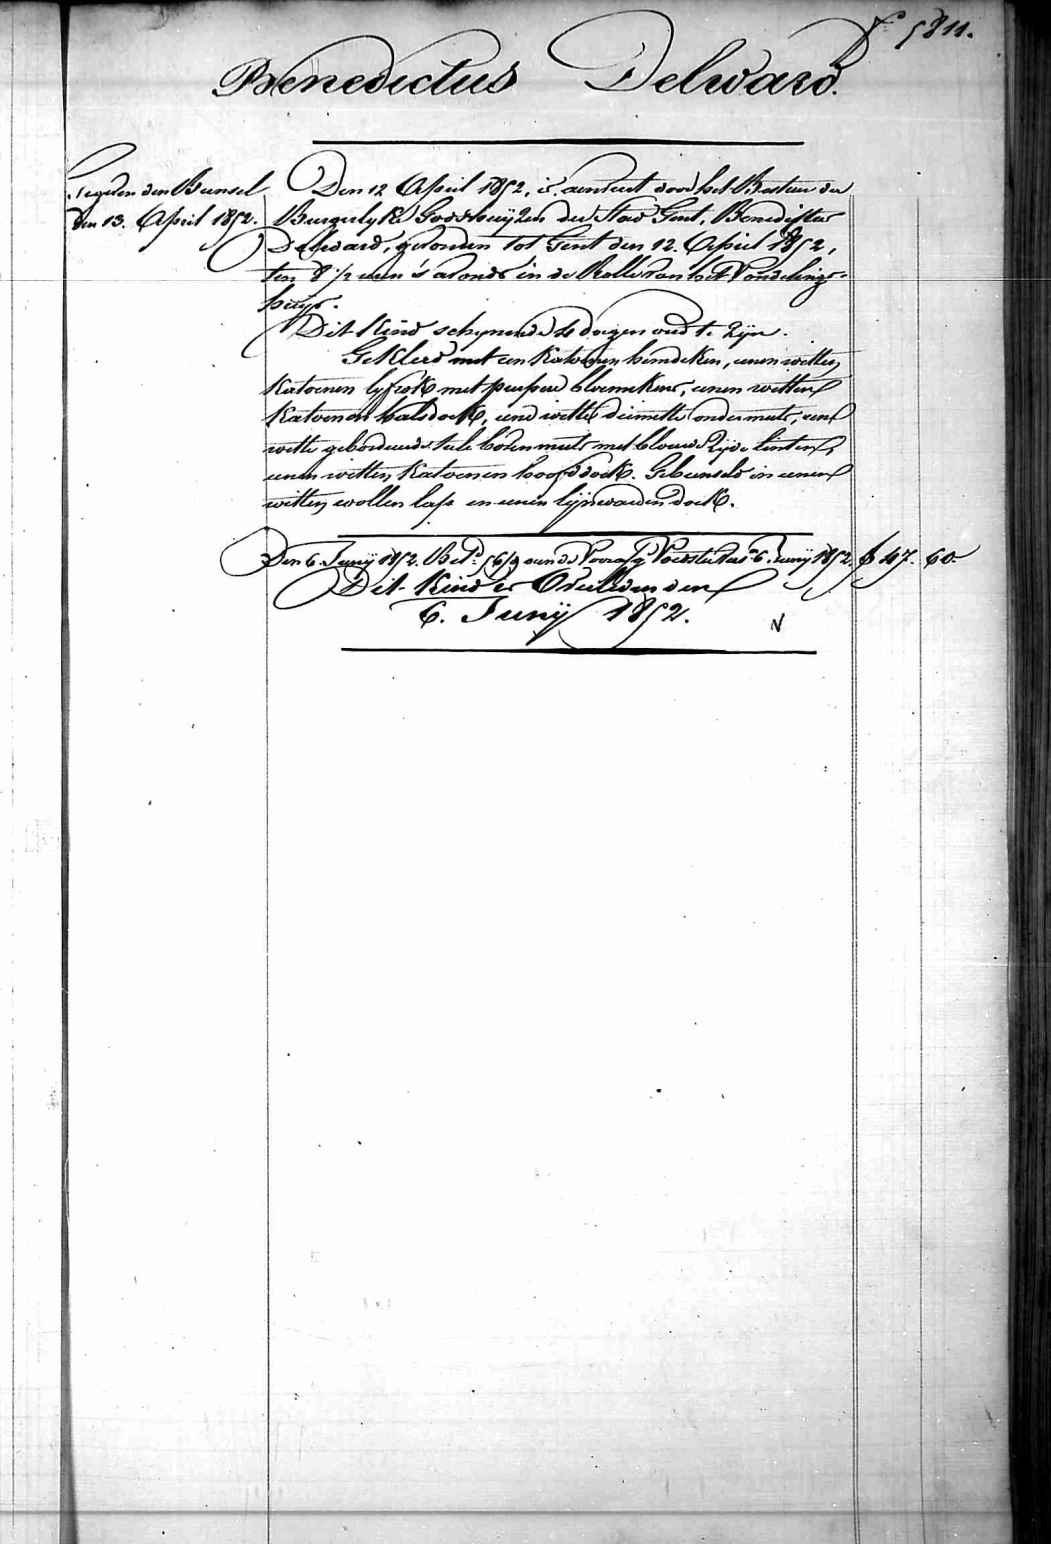 Nº 5811.
Benedictus Delward.
Gegeven den Bunsel
den 13. April 1852.
Den 12 April 1852, is aenveert door het Bestuer der
Burgerlyke Godshuijzen der Stad Gent, Benediktus
Delward, gevonden tot Gent den 12. April 1852,
ten 8 1/2 uren 's avonds in de Rolle van het Vondelings-
huys.
Dit Kind schynende 4 dagen oud te zyn.
Gekleed met een Katoenen hemdeken, eenen witten
Katoenen lyfrok met purpere bloemekens, eenen witten
Katoenen halsdoek, eene witte dimitte ondermuts, eene
witte geborduerde tule bovenmuts met blouwe Zyde linten,
eenen witten Katoenen hoofddoek. Gebunseld in eenen
witten wollen lap en eenen lynwaeden doek.
Den 6. Junij 1852. Betd. 56/9 aen de Voorzg Voedster tot 6. Junij 1852. f 47. 60.
Dit Kind is Overleden den
6. Junij 1852.